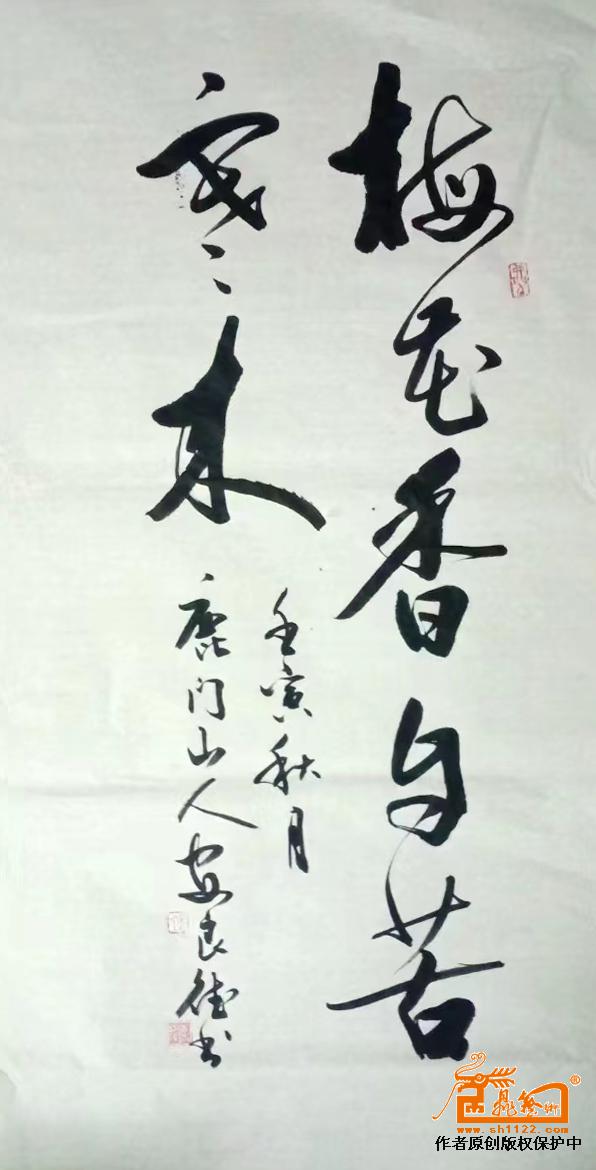 梅花香自苦
寒来
壬寅秋月
鹿门山人安良徳书
www.sh1122.com
作者原创版权保护中